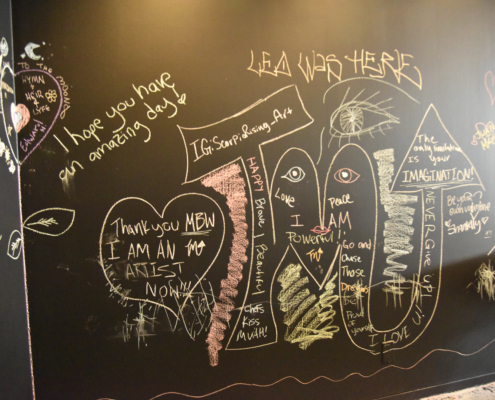 LEO WAS HERE
TO THE MOON
HYMN
HEIR &
I hope you have
an amazing day
IG: Scorpi.Rising.Art
The
only limitation
is your
IMAGINATION!
HAPPY Brave Beautiful
Love
Peace
I AM
Powerful!
Go and
Chase
Those
Dreams
Proud
NEVER GIVE UP!
I LOVE U!
Be your
own
Thank you MBW
I AM AN
ARTIST
NOW!!!
Chefs
Kiss
MUAH!